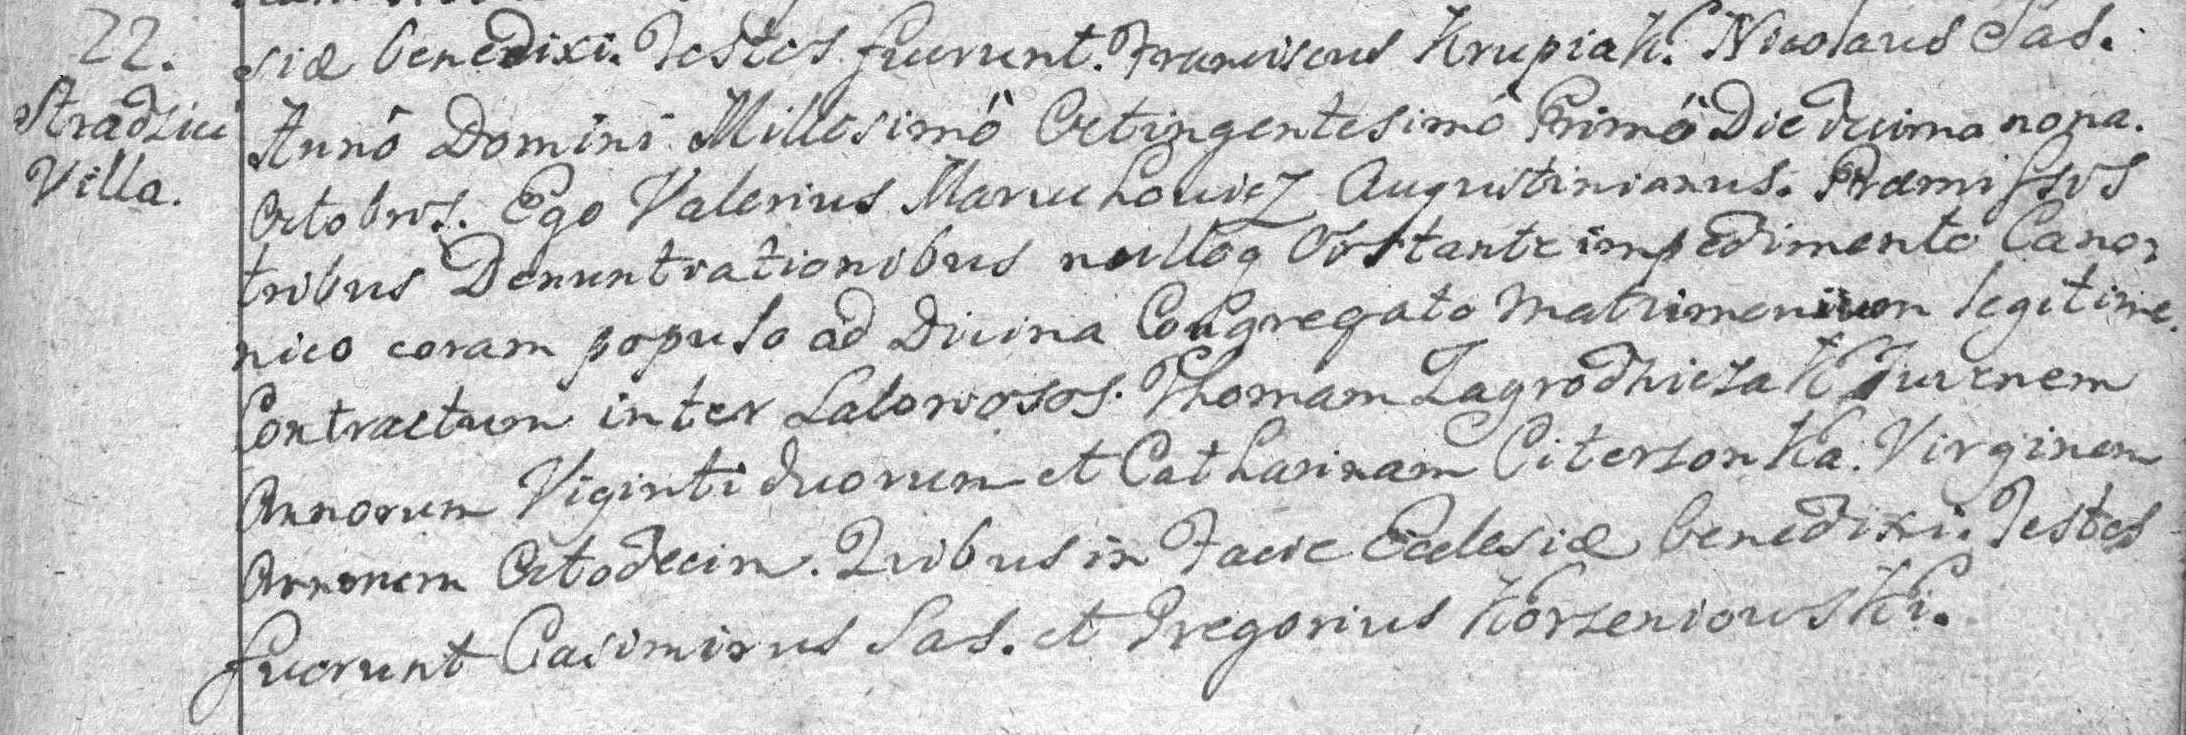 siæ benedixi. Testes fuerunt. Franciscus Krupiak. Nicolaus Sas.
22.
Stradzieu
Villa.
Annô Domini Millesimô Octingentesimô Primô Die decima nona.
Octobris. Ego Valerius Marucholuicz Augustinianus. Præmissis
tribus Denuntiationibus nulloq Obstante impedimento Cano,
nico coram populo ad Divina Congregato Matrimonium legitime.
Contractum inter Laboriosos. Thomam Zagrodniczak Juvenem
Annorum Viginti duorum et Catharinam Citerzonka. Virginem
Annorum Octodecim. Quibus in Facie Ecclesiæ benedixi. Testes
fuerunt Casimirus Sas. et Gregorius Korzeniowski.